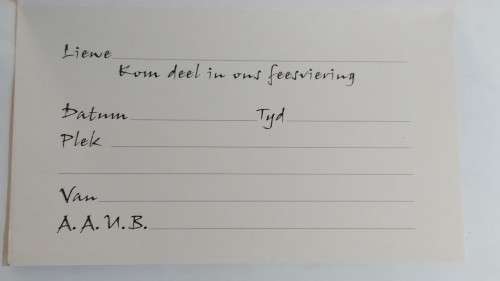 Liewe
Kom deel in ons feesviering
Datum Tyd
Plek
Van
A.A.U.B.